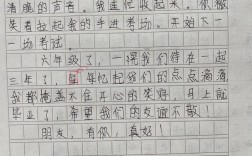 清脆的声音。我连忙收起来。你微
笑着拉起我的手进考场。开始下一
一场考试。
六年级了，一晃我们待在一起
三年了，每每忆起我们的点点滴滴
我都掩盖不住开心的笑容，月上就
毕业了，希望我们的友谊不散！
朋友，有你，真好！